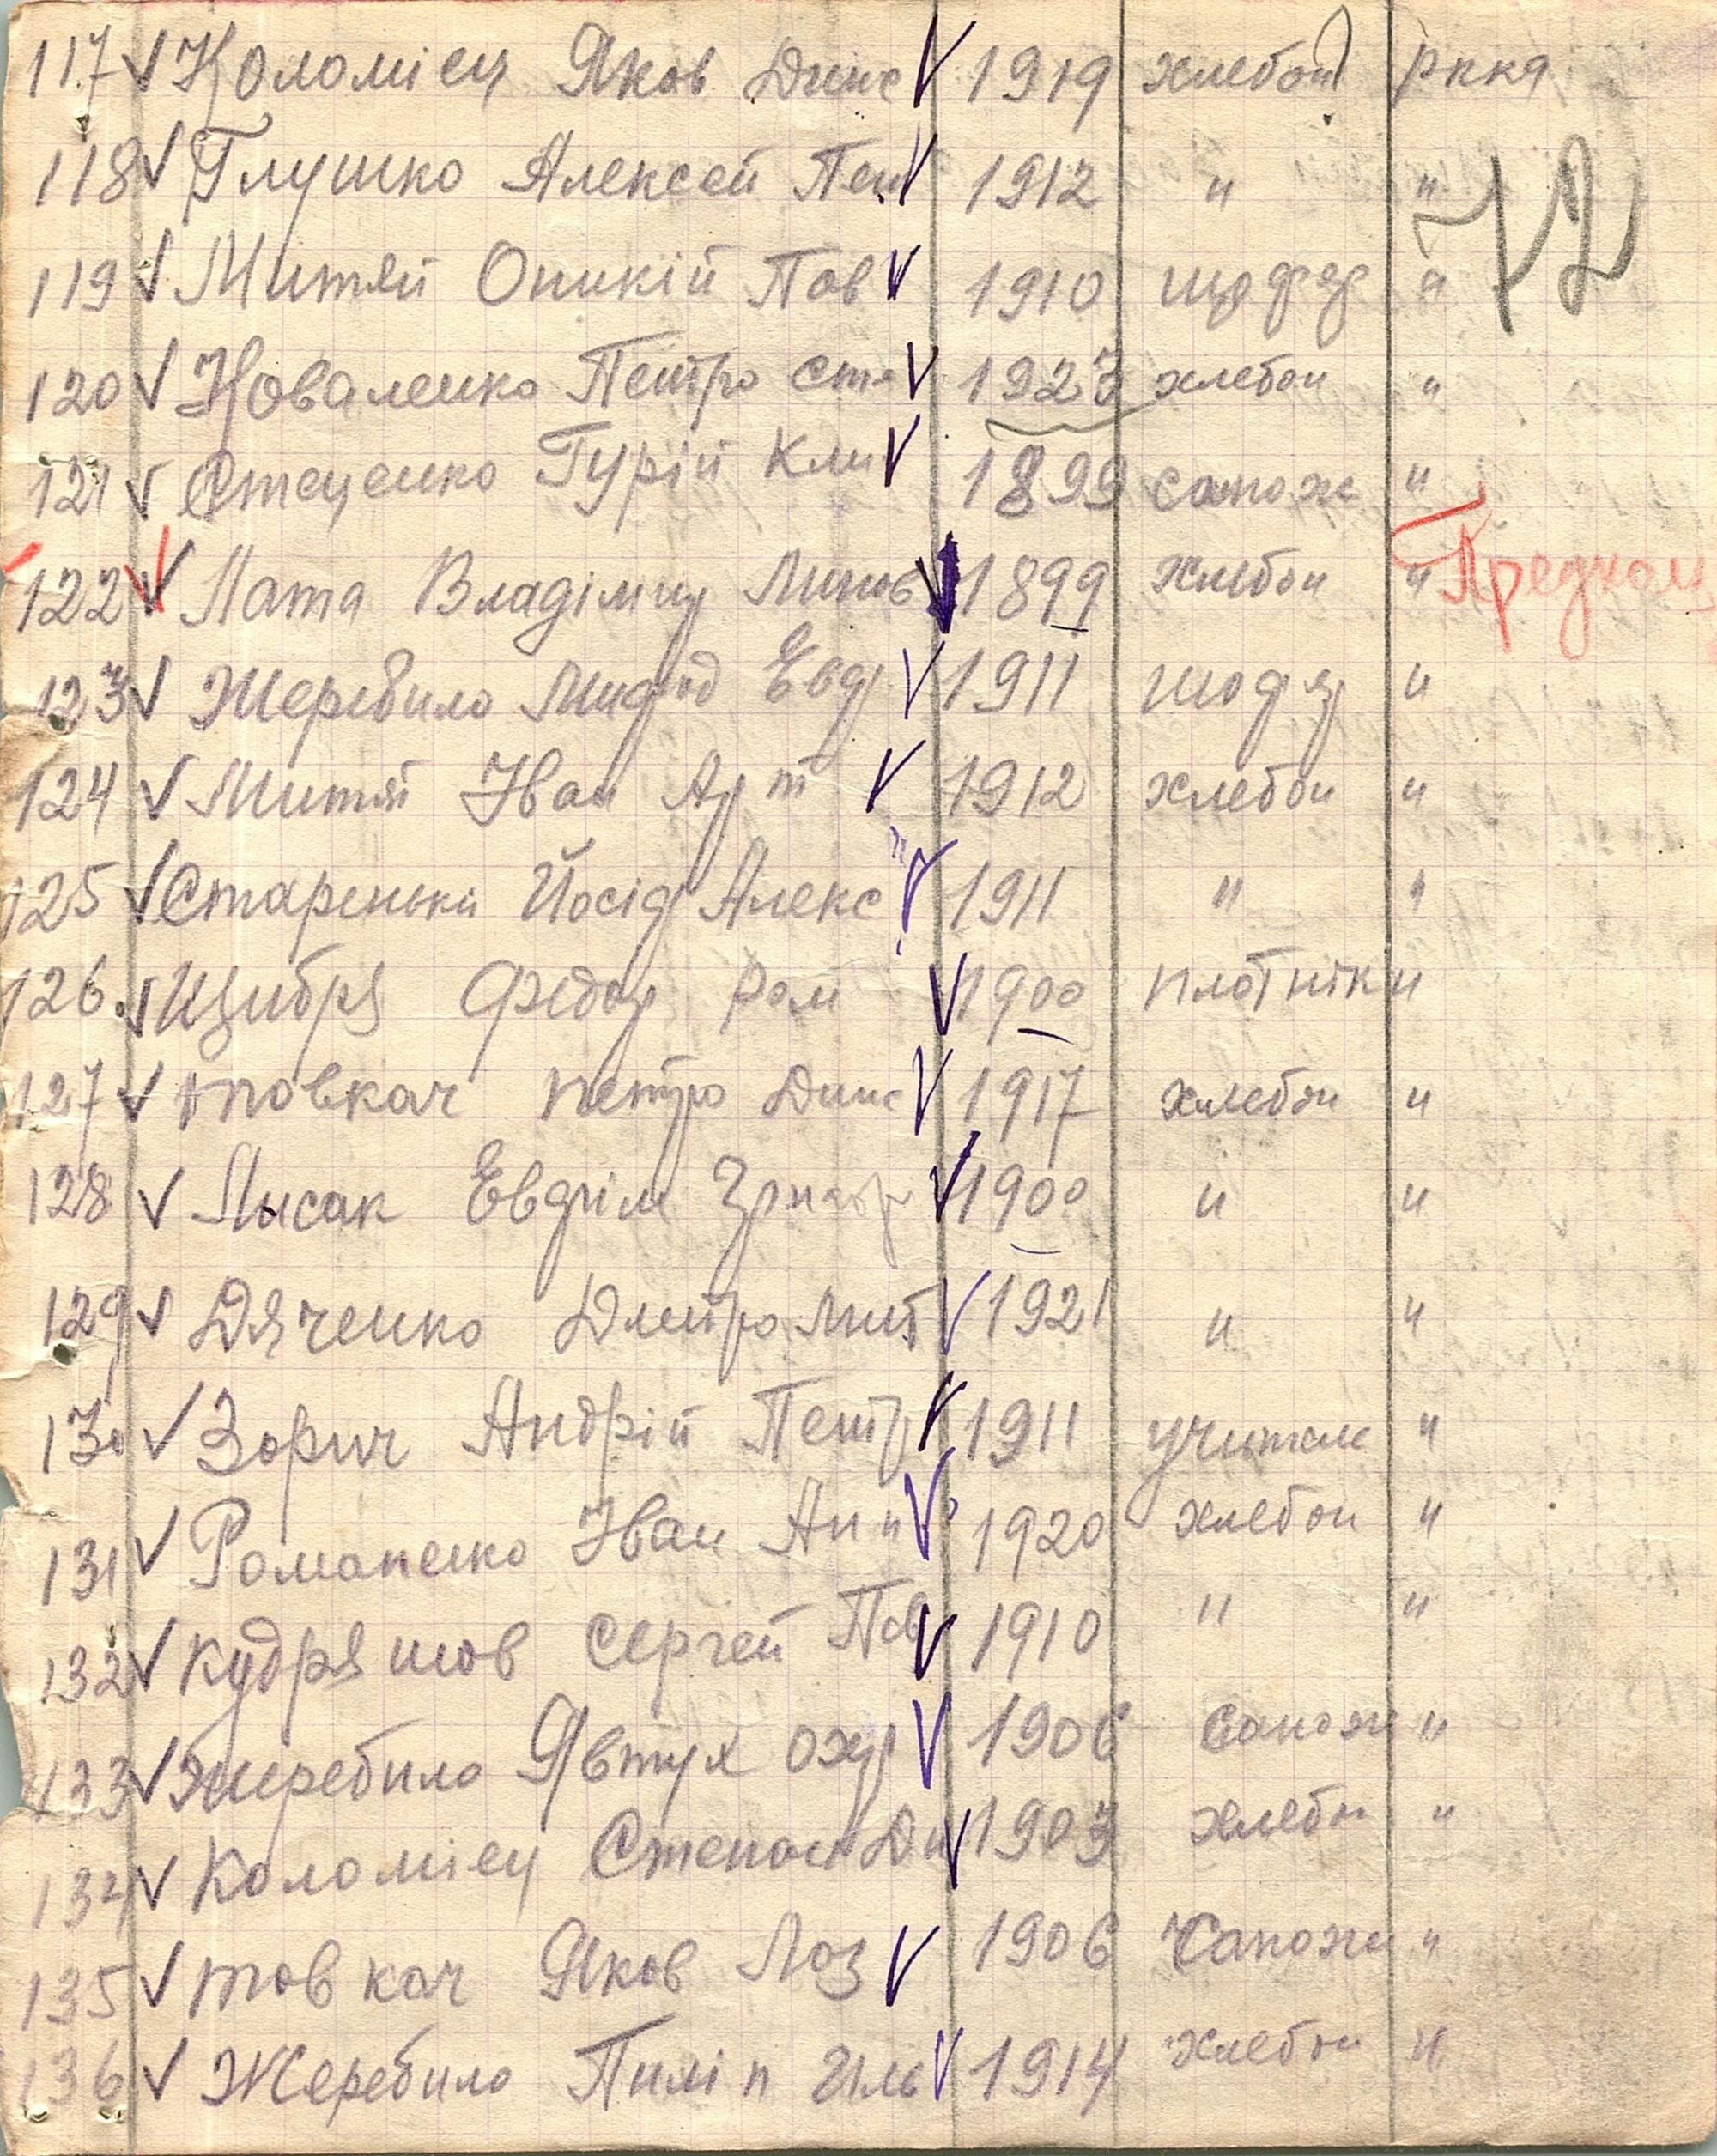 117 Коломіец Яков Дине 1919 хлебоп ркка
118 Глушко Алексей Пет 1912 " "
12
119 Митяй Оникій Пав 1910 шофер "
120 Коваленко Петро Сте 1923 хлебоп "
121 Стеценко Гурій Кли 1899 сапож "
122 Лата Владімир Минов 1899 хлебоп " Предколх
123 Жеребило Мифод Евд 1911 шофер "
124 Митяй Іван Арт 1912 хлебоп "
125 Старенькй Йосіф Алекс 1911 " "
126 Щибря Федор Ром 1900 плотнік "
127 товкач петро Дине 1917 хлебоп "
128 Лысак Евдгім 1900 " "
129 Дяченко Дмитро Мит 1921 " "
130 Зорич Андрій Петр 1911 учител "
131 Романенко Іван Ан 1920 хлебоп "
132 Кудряшов Сергей Пав 1910 " "
133 Жеребило Явтух Оху 1906 сапож "
134 Коломіец Степан Ди 1903 хлебоп "
135 товкач Яков Лоз 1906 Сапожн "
136 Жеребило Пиліп Иль 1914 хлебоп "